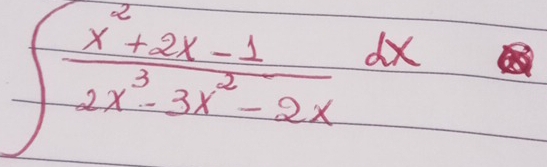 ∫ (x² + 2x - 1) / (2x³ - 3x² - 2x) dx